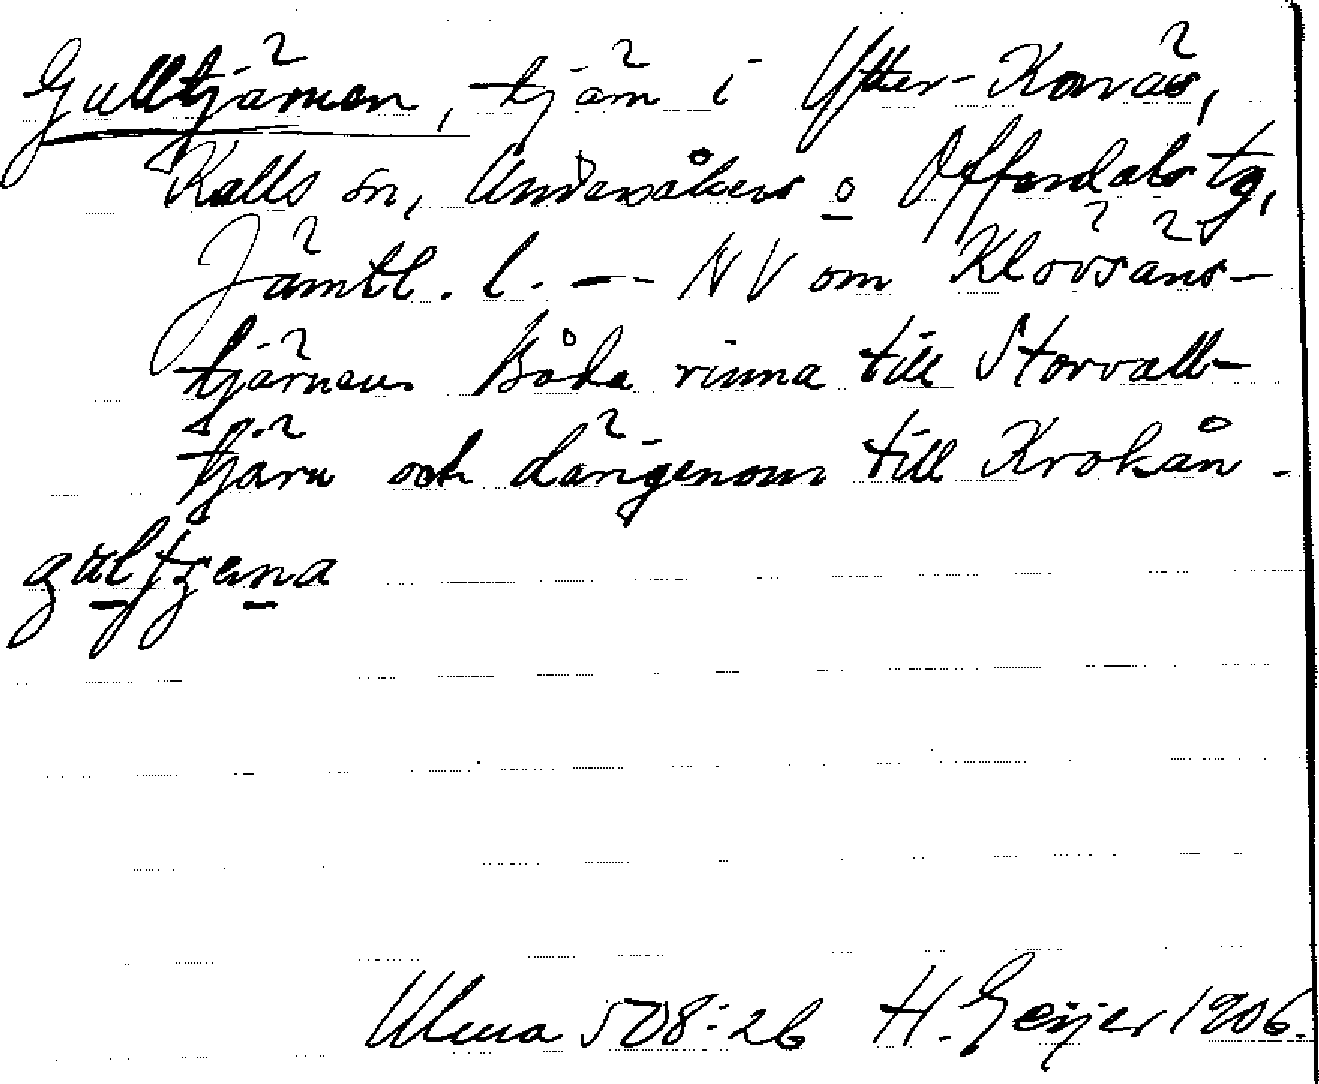 Gulltjärnen, tjärn i Ytter-Kovås,
Kalls sn, Undersåkers o Offerdals tg,
Jämtl. l. -- NV om Klövsåns-
tjärnen. Båda rinna till Storvall-
tjärn och därigenom till Krokån.
Ulma 508:26 H. Geijer 1906.